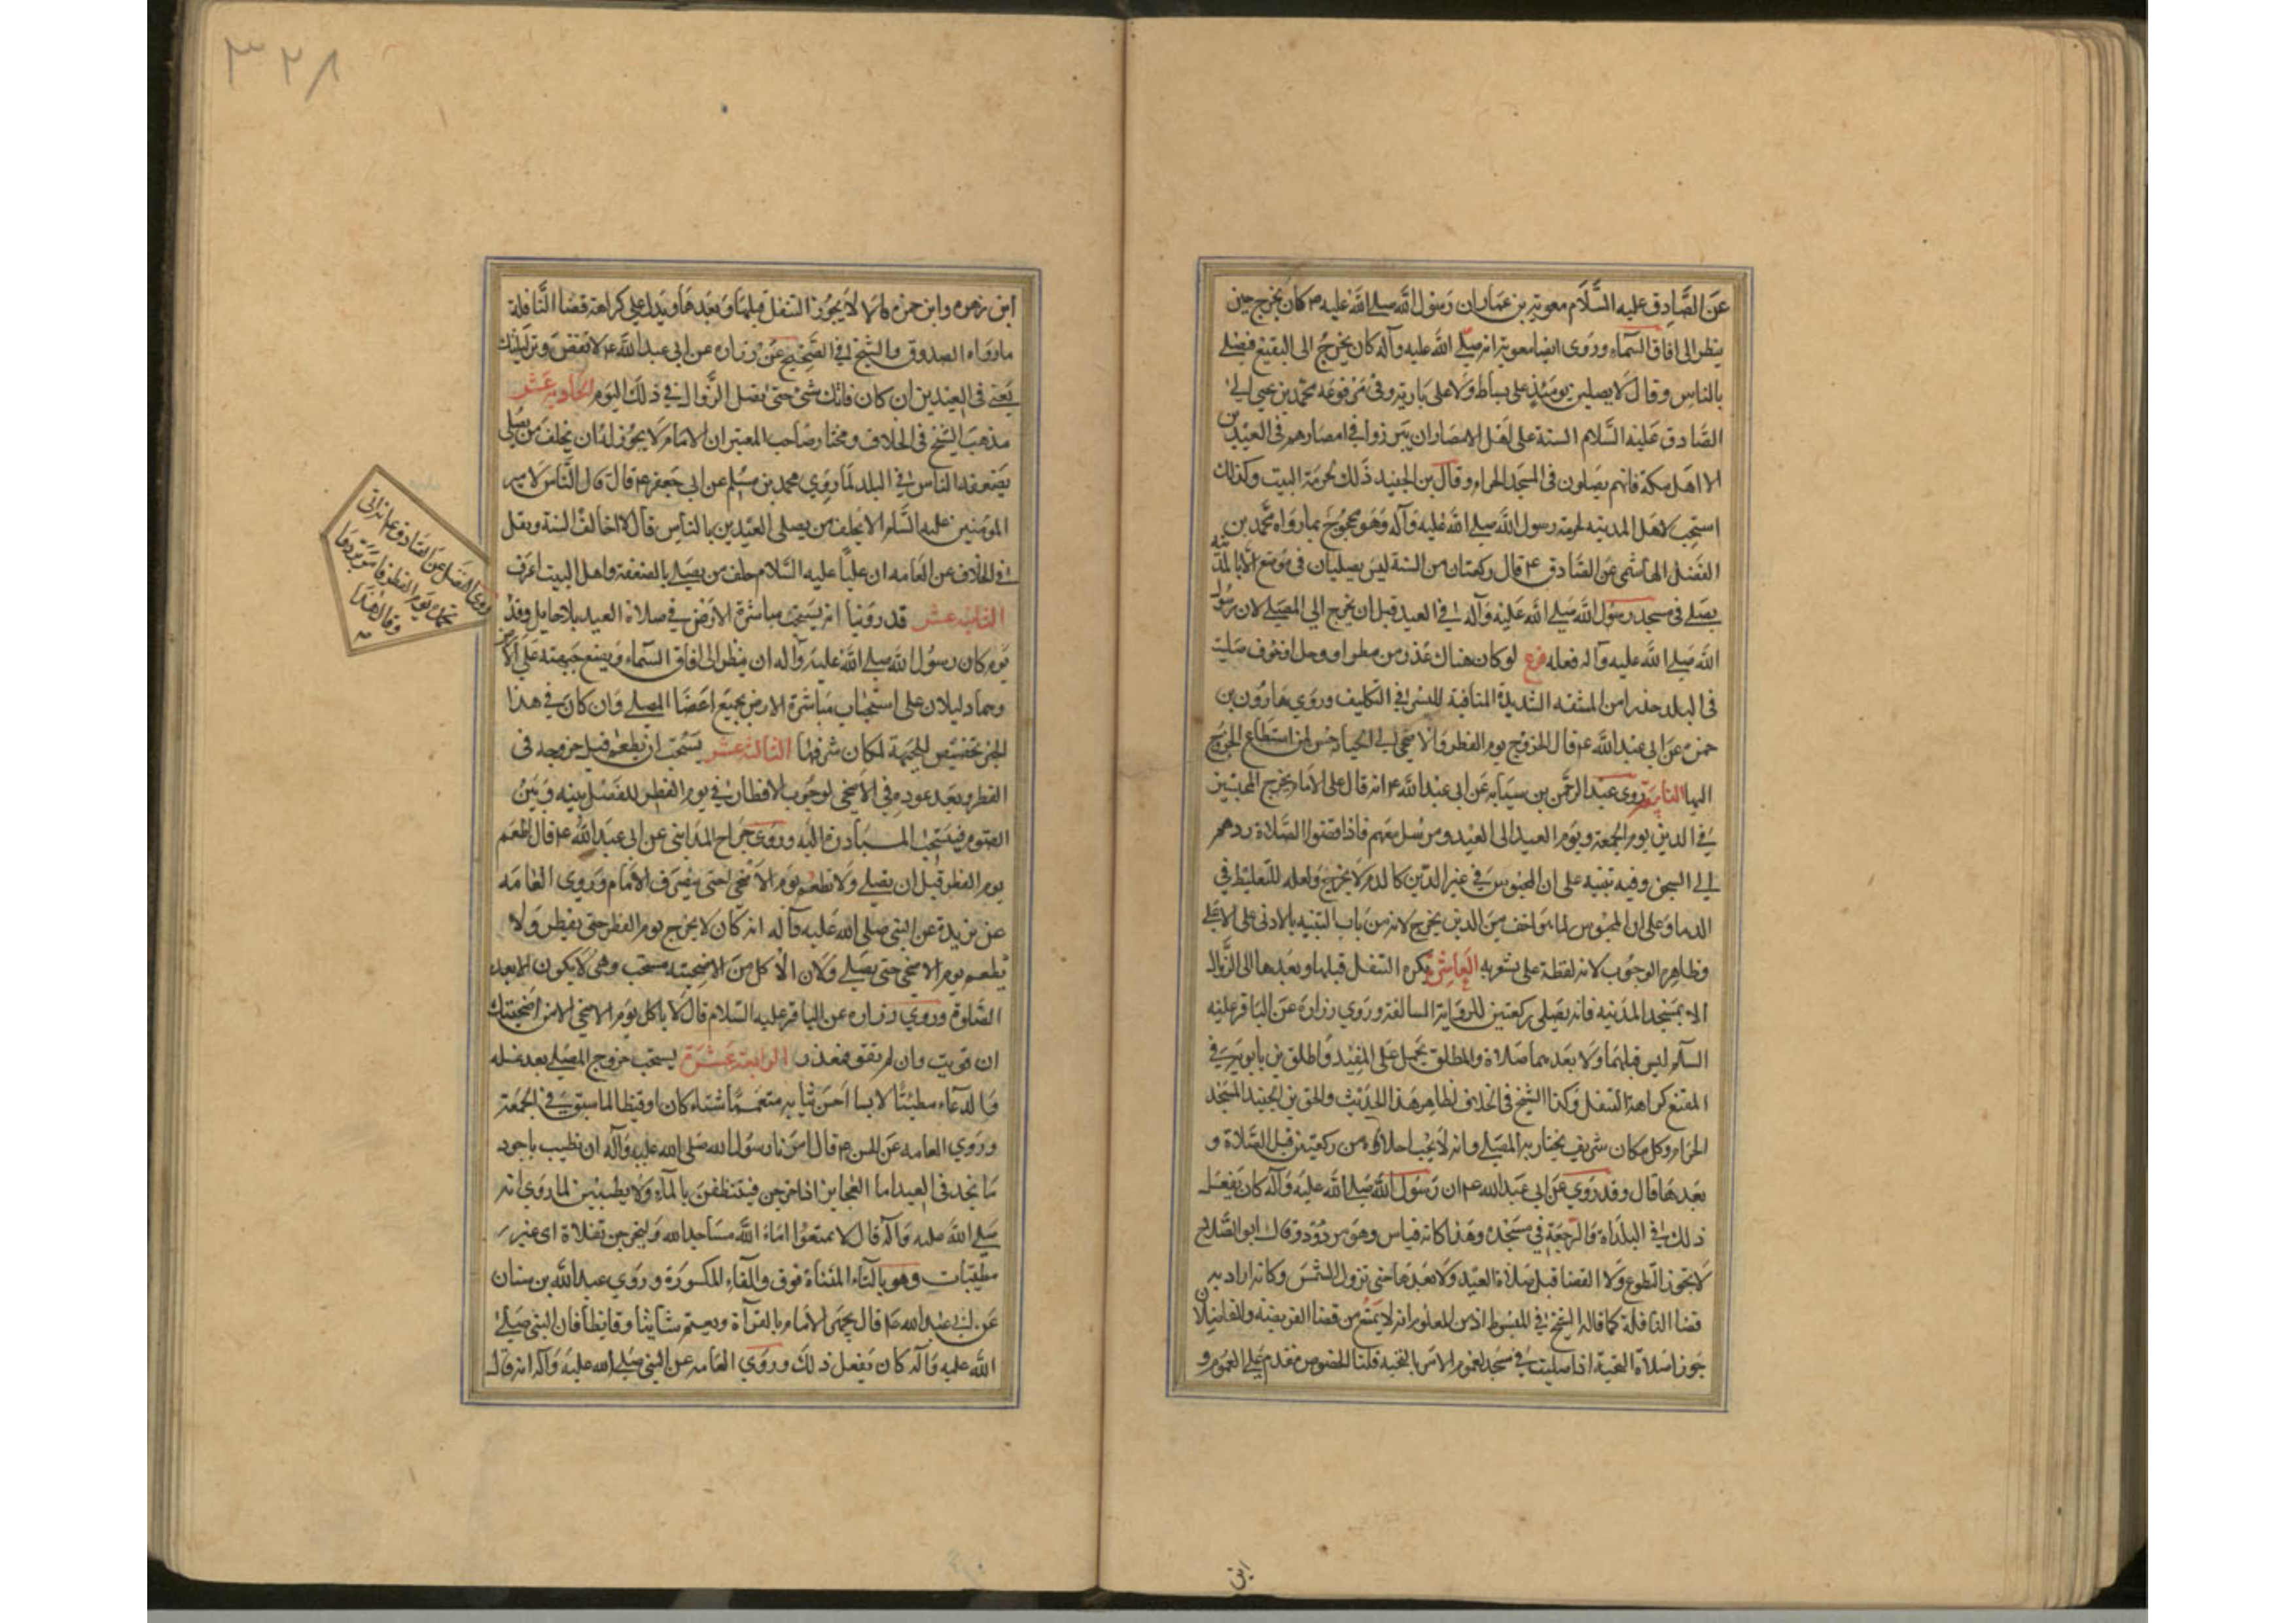 عن الصادق عليه السلام معوية بن عمار ان رسول الله صلى الله عليه كان يخرج حين
ينظر الى افاق السماء وروى ايضا معوية انه صلى الله عليه وآله كان يخرج الى البقيع فيصلى
بالناس وقال لا يصلين يومئذ على بساط ولا على بارية وفى مرفوعه محمد بن يحيى الى
الصادق عليه السلام السنة على اهل الامصار ان يبرزوا فى امصارهم فى العيدين
الا اهل مكة فانهم يصلون فى المسجد الحرام وقال بن الجنيد ذلك لحرمة البيت وكذلك
استحب لاهل المدينه لحرمة رسول الله صلى الله عليه وآله وهو محجوج بما رواه محمد بن
الفضل الهاشمى عن الصادق ع قال ركعتان من السنة ليس يصليان فى موضع الا بالمدينه
يصلى فى مسجد رسول الله صلى الله عليه وآله فى العيد قبل ان يخرج الى المصلى لان رسول
الله صلى الله عليه وآله فعله فرع لو كان هناك عذر من مطر او وحل او خوف صليت
فى البلد حذرا من المشقه الشديدة المنافية لليسر فى التكليف وروى هارون بن
حمزه عن ابى عبد الله ع قال الخروج يوم الفطر والاضحى الى الجبانه حسن لمن استطاع الخروج
اليها التاسعه روى عبد الرحمن بن سيابه عن ابى عبد الله ع انه قال على الامام يخرج المحبسين
فى الدين يوم الجمعة ويوم العيد الى العيد ومرسل معهم فاذا قضوا الصلاة ردهم
الى السجن وفيه تنبيه على ان المحبوس فى غير الدين كالدم لا يخرج ولعله للتغليظ فى
الدما وعلى ان المحبوس لما هو اخف من الدين يخرج لانه من باب التنبيه بالادنى على الاعلى
وظاهره الوجوب لانه لفظة على يشعر به العاشرة يكره التنفل قبلها وبعدها الى الزوال
الا بمسجد المدينه فانه يصلى ركعتين للرواية السالفة وروى زراره عن الباقر عليه
السلام ليس قبلهما ولا بعدهما صلاة والمطلق يحمل على المقيد واطلق بن بابويه فى
المقنع كراهة التنفل وكذا الشيخ فى الخلاف لظاهر هذا الحديث والحق بن الجنيد المسجد
الحرام وكل مكان شريف يجتاز به المصلى وانه لا يحب اخلاءه من ركعتين قبل الصلاة و
بعدها قال وقد روى عن ابى عبد الله ع ان رسول الله صلى الله عليه وآله كان يفعل
ذلك فى البداة والرجعة فى مسجده وهذا كانه قياس وهو مردود وقال ابو الصلاح
لا يجوز التطوع ولا القضا قبل صلاة العيد ولا بعدها حتى تزول الشمس وكانه اراد به
قضا النافلة كما قاله الشيخ فى المبسوط اذ من المعلوم انه لا يمنع من قضا الفريضة والفاضلان
جوزا صلاة التحية اذا صليت فى مسجد لعموم الامر بالتحية قلنا الخصوص مقدم على العموم و
ابن
٣٢٨
ابن زهره وابن حمزه قالا لا يجوز التنفل قبلها وبعدها ويدل على كراهة قضا النافلة
ما رواه الصدوق والشيخ فى الصحيح عن زراره عن ابى عبد الله ع لا تقض وتر ليلتك
يعنى فى العيدين ان كان فاتك شئ حتى تصلى الزوال فى ذلك اليوم الحاديه عشر
مذهب الشيخ فى الخلاف ومختار صاحب المعتبر ان الامام لا يجوز له ان يخلف من يصلى
بضعفه الناس فى البلد لما روى محمد بن مسلم عن ابى جعفر ع قال قال الناس لامير
المؤمنين عليه السلام الا تخلف من يصلى العيدين بالناس قال لا اخالف السنة ونقل
فى الخلاف عن العامه ان عليا عليه السلام خلف من يصلى بالضعفة واهل البيت اعرف
الثانيه عشر قد روينا انه يستحب مباشرة الارض فى صلاة العيد بلا حايل وفد
يوم كان رسول الله صلى الله عليه وآله ان ينظر الى افاق السماء ويضع جبهته على الارض
وحما دليلان على استحباب مباشرة الارض بجميع اعضا المصلى وان كان فى هذا
الخبر تخصيص للجبهة لمكان شرفها الثالثه عشر يستحب ان يطعم قبل خروجه فى
الفطر وبعد عوده فى الاضحى لوجوب الافطار فى يوم الفطر للفصل بينه وبين
الصوم فيستحب المبادرة اليه وروى جراح المداينى عن ابى عبد الله ع قال اطعم
يوم الفطر قبل ان يصلى ولا تطعم يوم الاضحى حتى ينصرف الامام وروى العامه
عن بريدة عن النبى صلى الله عليه وآله انه كان لا يخرج يوم الفطر حتى يفطر ولا
يطعم يوم الاضحى حتى يصلى ولان الاكل من الاضحية مستحب وهى لا يكون الا بعد
الصلوة وروى زراره عن الباقر عليه السلام قال لا ياكل يوم الاضحى الا من اضحيتك
ان قويت وان لم تقو فمعذور الرابعة عشرة يستحب خروج المصلى بعد غسله
والدعاء متطيبا لابسا احسن ثيابه متعمما شتاء كان او قيظا لما سبق فى الجمعة
وروى العامه عن الحسن ع قال امرنا رسول الله صلى الله عليه وآله ان نتطيب باجود
ما نجد فى العيد اما العجايز اذا خرجن فيتنظفن بالماء ولا يطيبن لما روى انه
صلى الله عليه وآله قال لا تمنعوا اماء الله مساجد الله وليخرجن تفلات اى غير
مطيبات وهو بالتاء المثناة فوق والفاء المكسورة وروى عبد الله بن سنان
عن ابى عبد الله ع قال يجهر الامام بالقرآة ويعتم شاتيا وقايظا فان النبى صلى
الله عليه وآله كان يفعل ذلك وروى العامه عن النبى صلى الله عليه وآله انه قال
روى الفضل عن الصادق ع انه اتى
بخمره يوم الفطر فامر بردها
وقال هذا